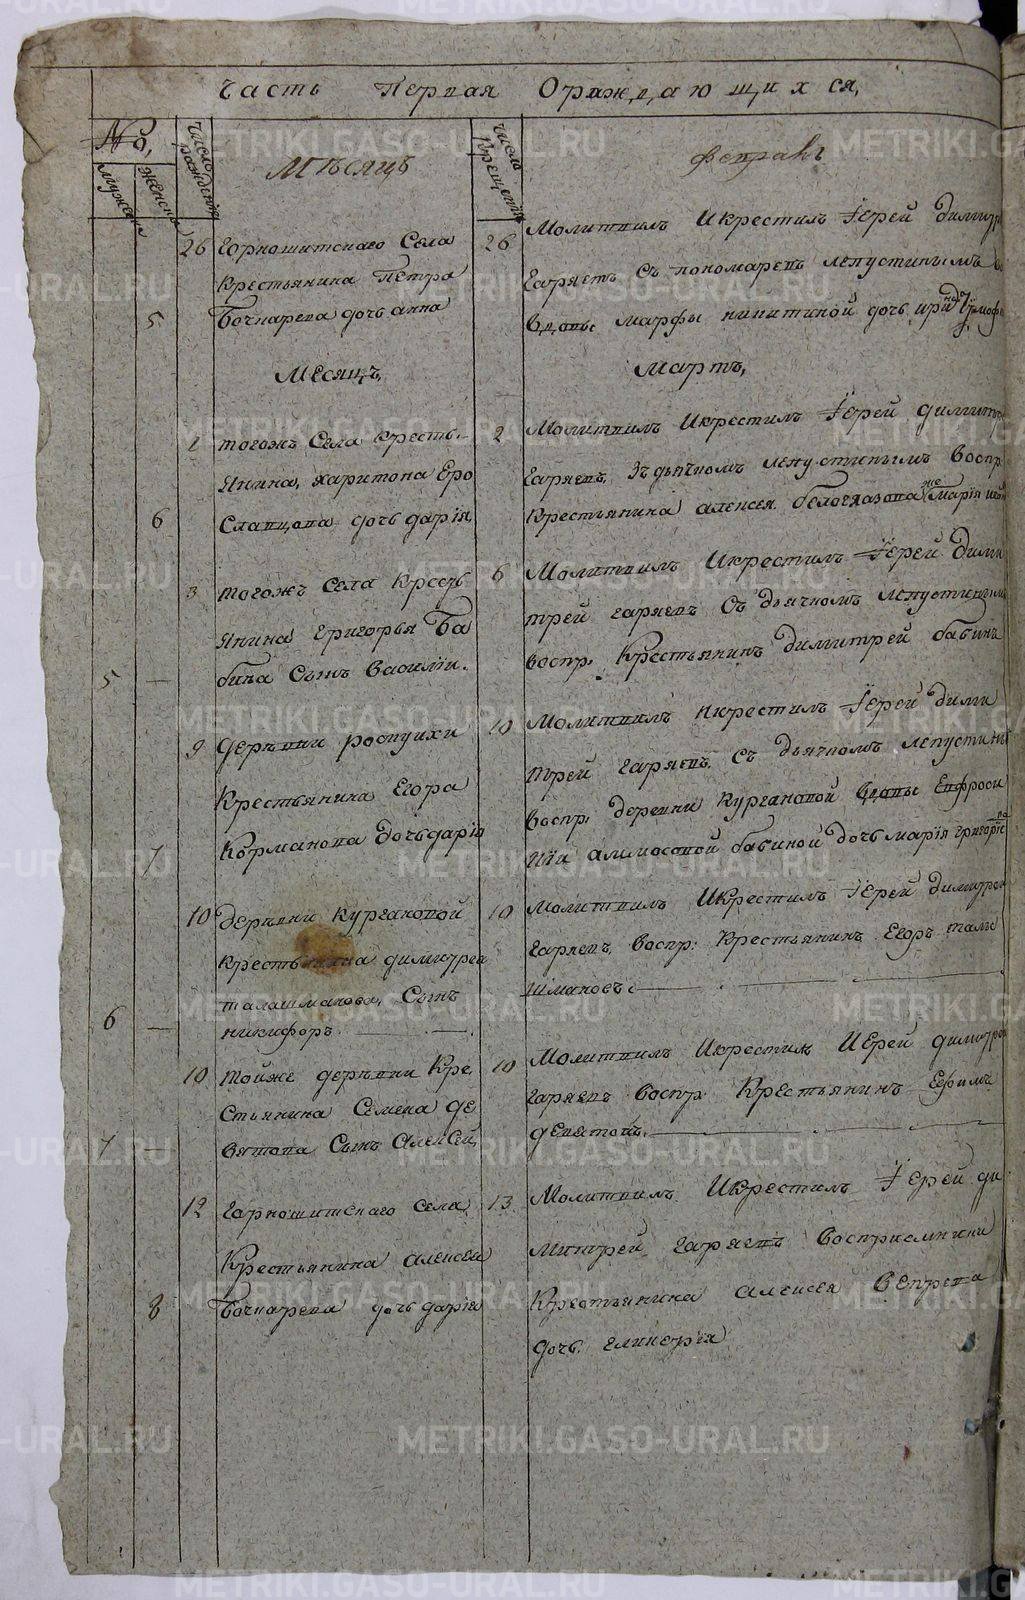 Часть Первая Ораждающихся,
№о,
мужеска
женска
число рождения
Мѣсяцъ
число крещения
февраль
26 Горношитскаго Села
крестьянина Петра
5 Бочкарева дочь анна
26 Молитвилъ Икрестилъ Їерей димитр
Гаряевъ съ пономаремъ лепустинымъ
вдовы марфы никитиной дочь
Месяцъ,
Мартъ,
1 тогожъ Села кресть-
янина, харитона Еро
6 Славцова дочь дарїя
2 Молитвилъ Икрестилъ Їерей димитр
Гаряевъ, зъ дьячкомъ лепустинымъ воспр.
крестьянина алексея белоглазова жена марїя
3 тогожъ села кресть
янина григорья Ба
5 — бина Сынъ Василїи.
6 Молитвилъ Икрестилъ Їерей дими
трей гаряевъ съ дьячкомъ лепустинымъ
воспр. Крестьянинъ димитрей бабинъ
9 деревни роспуихи
крестьянина Егора
7 Корманова дочь дарїя
10 Молитвилъ икрестилъ Їерей дими
трей гаряевъ, съ дьячкомъ лепустинъ
воспр. деревни кургановой вдовы Евфроси
нїи алимпсовой бабиной дочь марїя григорїева
10 деревни кургановой
крестьянина димитрея
талашманова, Сынъ
6 — никифоръ.
10 молитвилъ Икрестилъ Їерей димитрей
гаряевъ, воспр: крестьянинъ Егоръ тала
шмановъ.
10 тойже деревни Кре
стьянина Семена де
7 — вятова Сынъ Алексей,
10 Молитвилъ Икрестилъ Иерей димитрей
гаряевъ воспр Крестьянинъ Ефимъ
девятовъ.
12 Горношитскаго села
Крестьянина алексея
8 Бочкарева дочь дарїя
13 Молитвилъ Икрестилъ Їерей ди
митрей гаряевъ восприемники
Крестьянина алексея вепрева
дочь гликерїя
METRIKI.GASO-URAL.RU